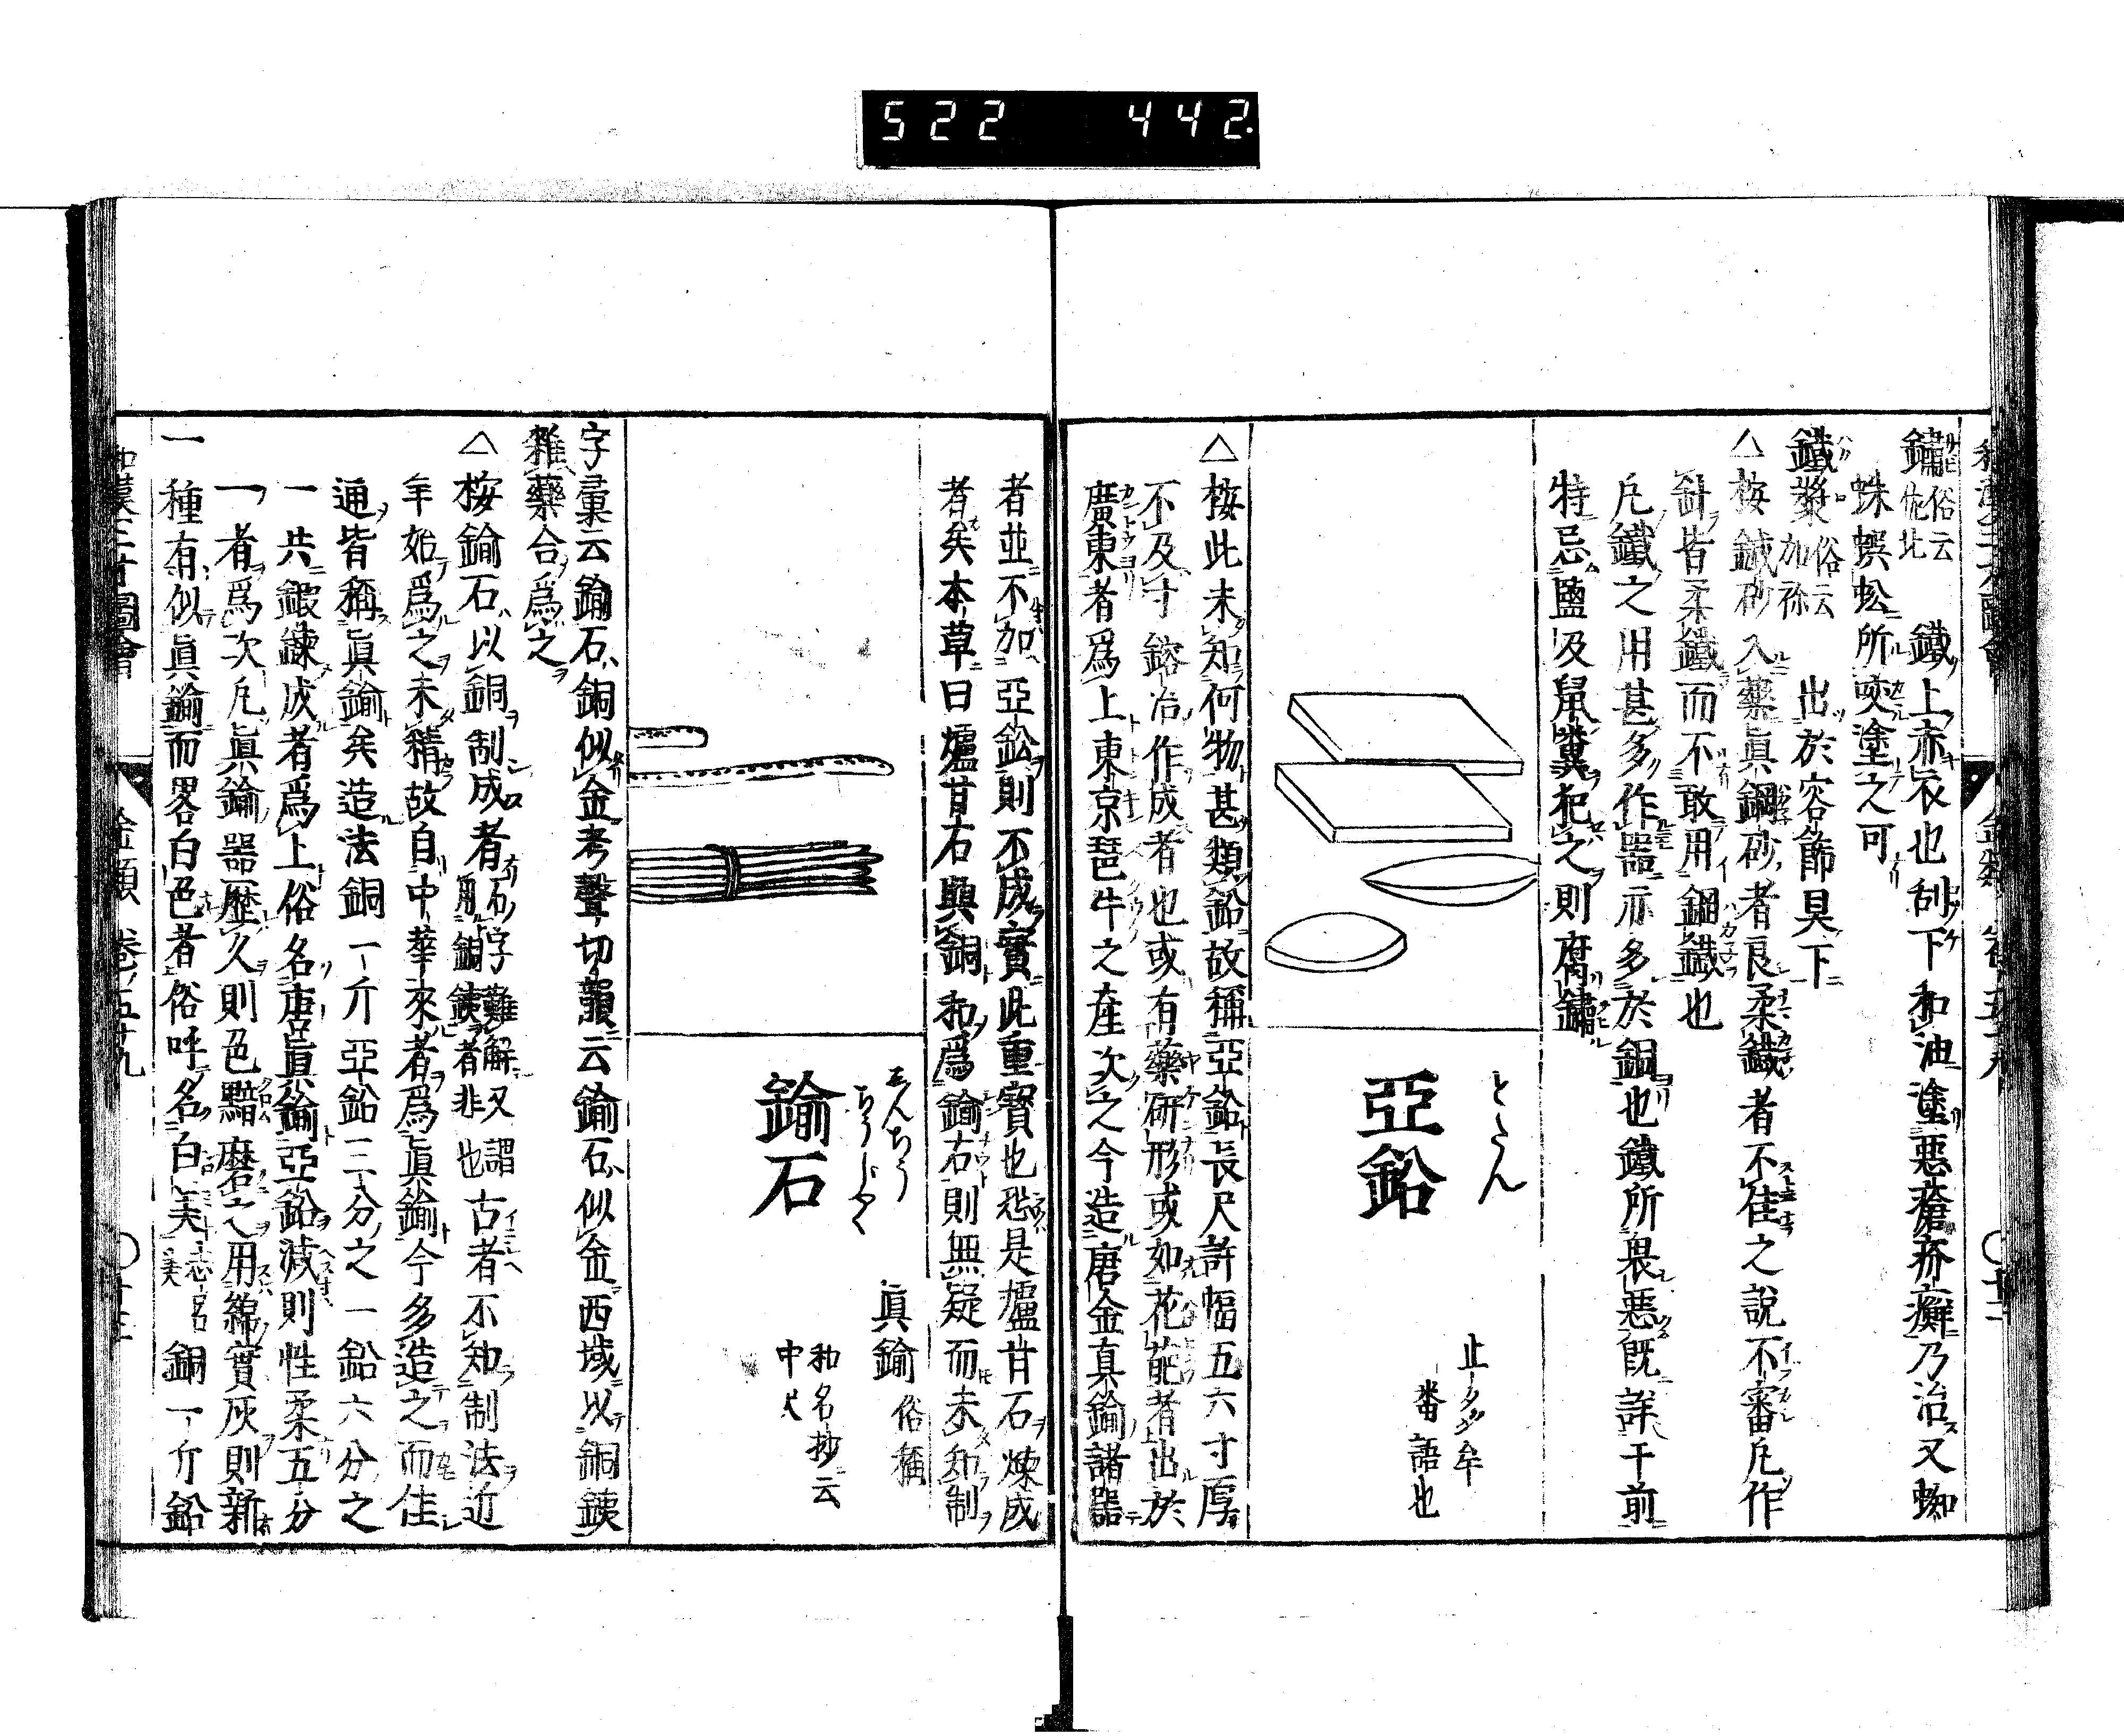 522 442.
鏽 俗云佐比 鐵上赤衣也刮下和油塗悪瘡疥癬乃治又蜘
蛛蜈蚣所咬塗之可
鐵漿 俗云加祢 出於容飾具下
△按鐵砂入藥真鋼砂者良柔鐵者不佳之說不審凡作
針皆柔鐵而不敢用鋼鐵也
凡鐵之用甚多作器亦多於銅也鐵所畏悪既詳于前
特忌鹽及鼠糞犯之則腐鏽
とたん
亞鉛
止多牟
番語也
△按此未知何物甚類鉛故稱亞鉛長尺許幅五六寸厚
不及寸鎔冶作成者也或有藥研形或如花葩者出於
廣東者爲上東京琶牛之產次之今造唐金真鍮諸器
者並不加亞鈆則不成實此重寶也恐是爐甘石煉成
者矣本草曰爐甘石與銅和爲鍮石則無疑而未知制
しんちう
ちうじやく
鍮石
眞鍮 俗稱
和名抄云
中尺
字彙云鍮石銅似金考聲切韻云鍮石似金西域以銅鐵
雜藥合爲之
△按鍮石以銅制成者 石字難解又謂用銅鐵者非也 古者不知制法近
年始爲之未精故自中華來者爲眞鍮今多造之而佳
通皆稱眞鍮矣造法銅一斤亞鉛三分之一鉛六分之
一共鍛鍊成者爲上俗名唐眞鍮亞鉛減則性柔五分
一者爲次凡眞鍮器歷久則色黯磨之用綿實灰則新
一種有似眞鍮而畧白色者俗呼名白美 志呂美 銅一斤鉛
和漢三才圖會 金類 卷ノ五十九 〇十三